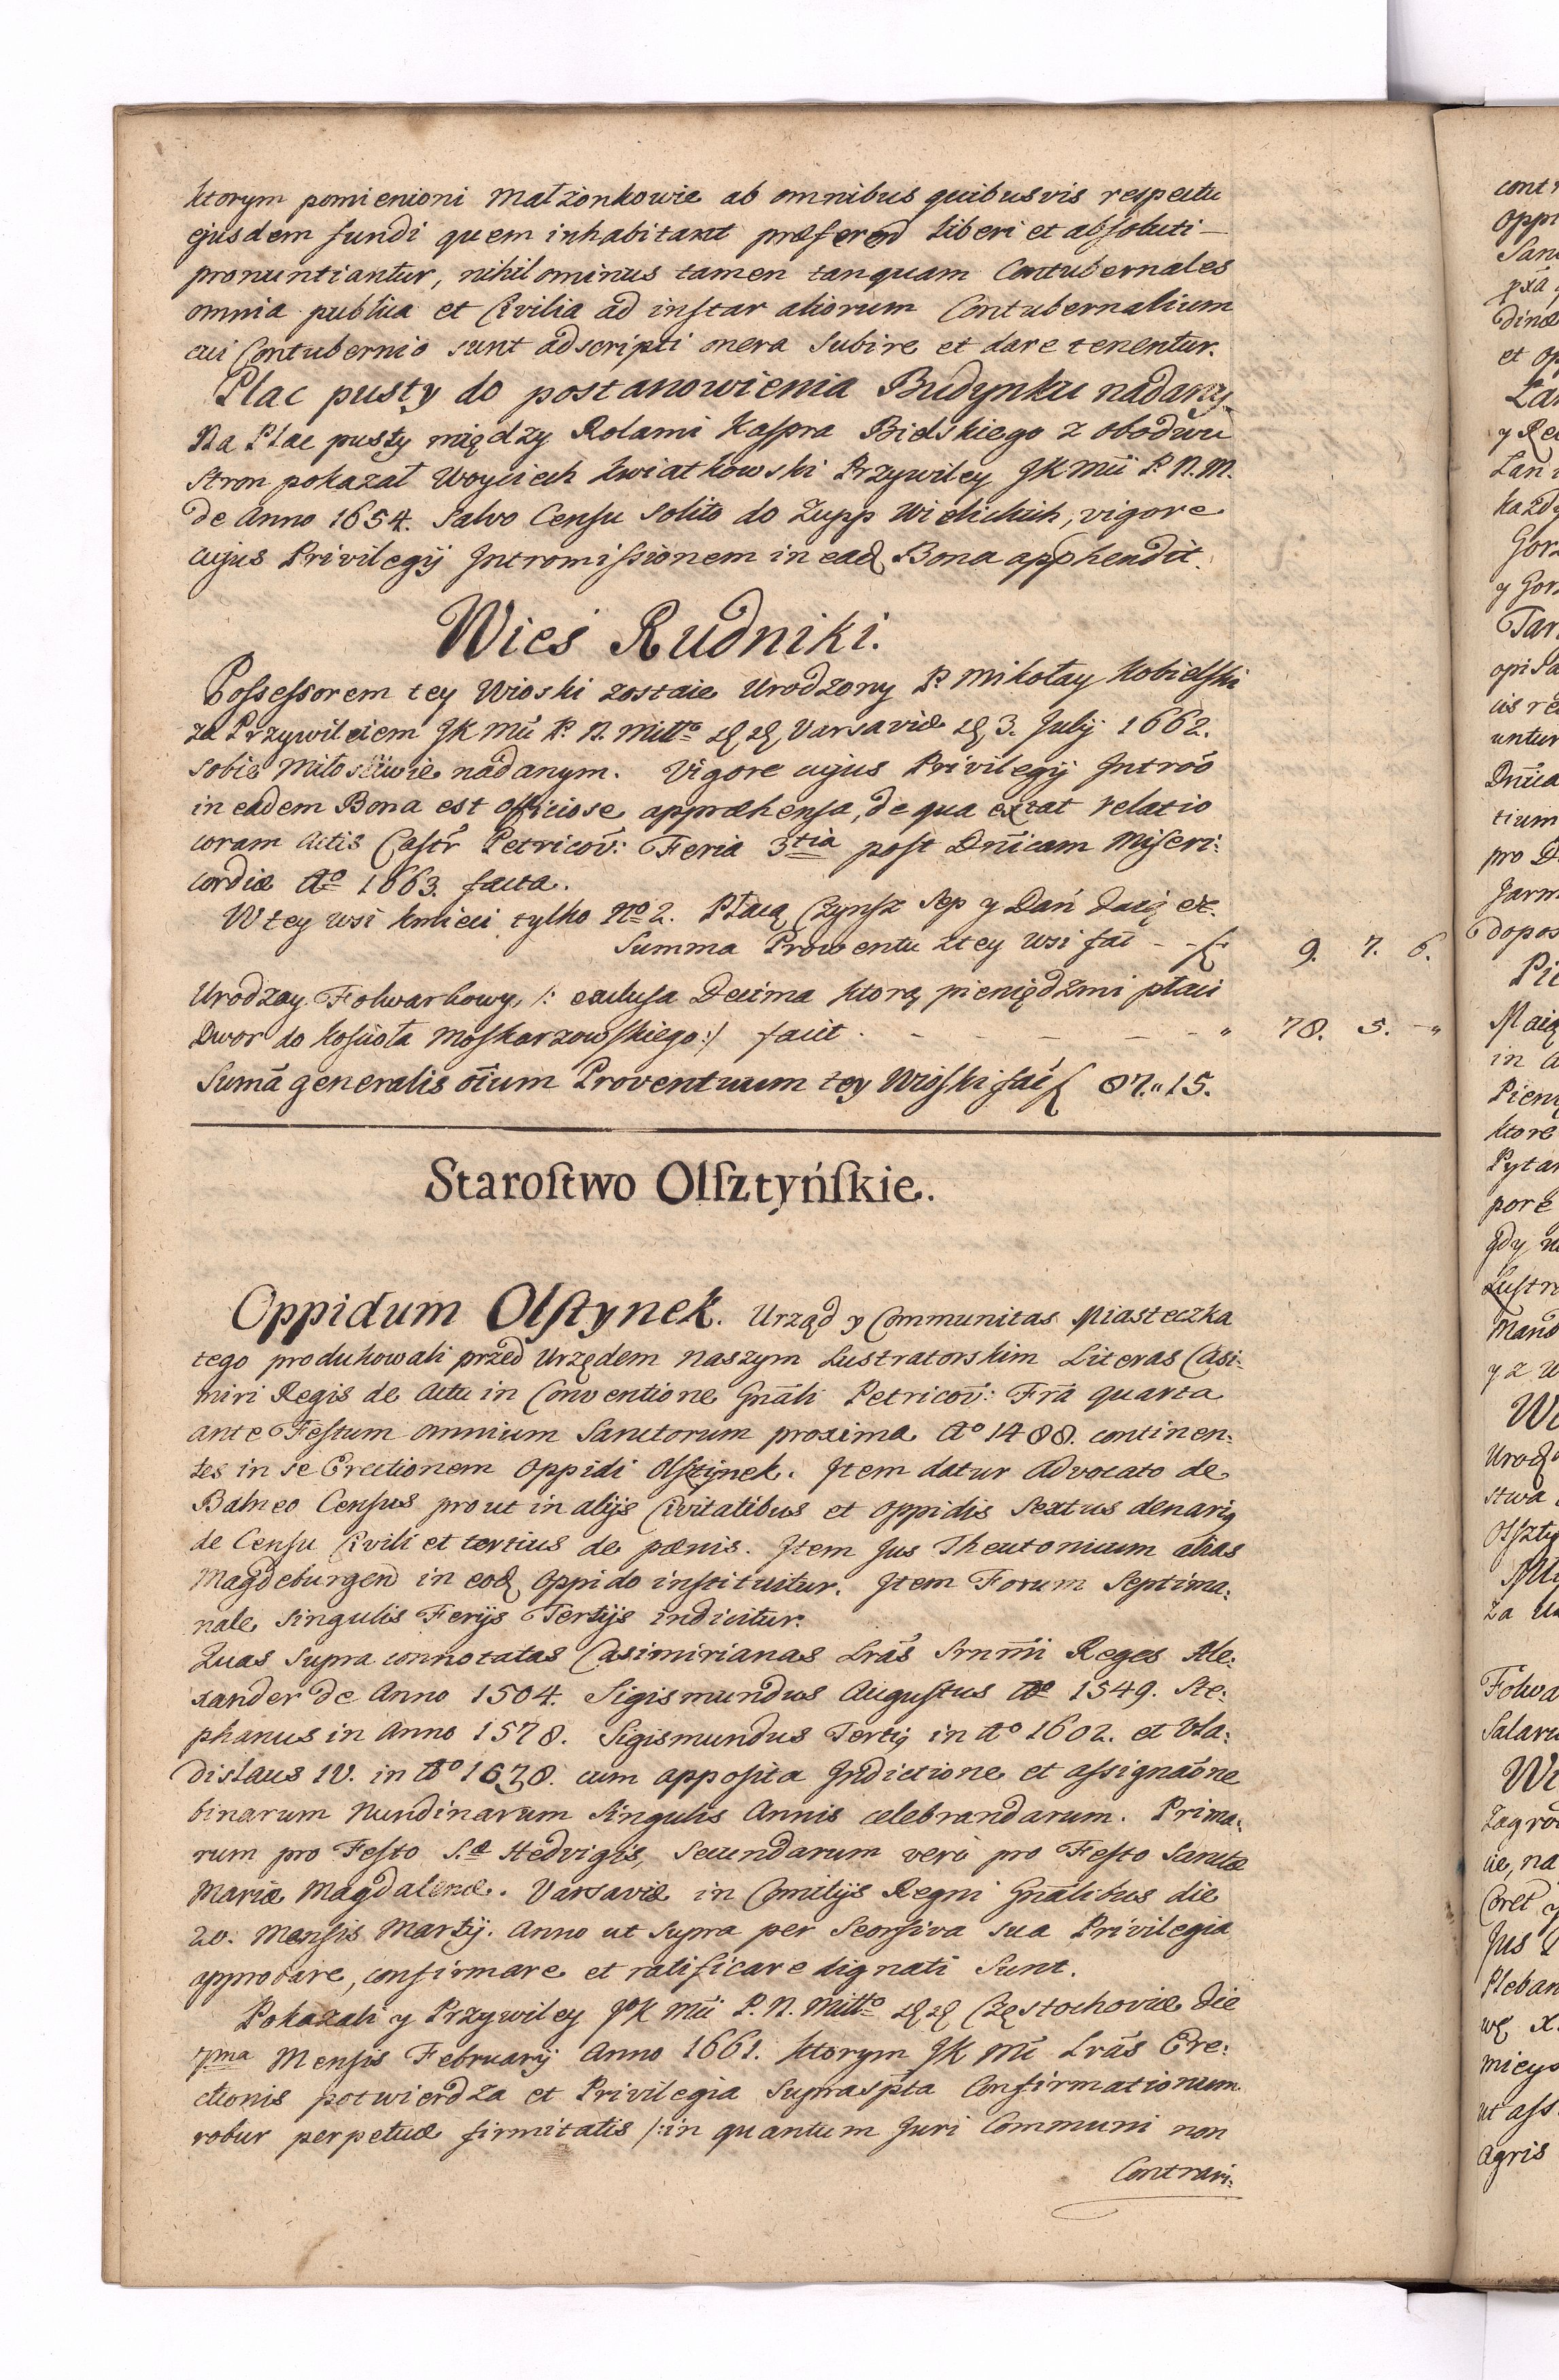 ktorym pomienioni Małżonkowie ab omnibus quibusvis respectu
ejusdem fundi quem inhabitant præferend liberi et absoluti
pronuntiantur, nihilominus tamen tanquam Contubernales
omnia publica et Civilia ad instar aliorum Contubernalium
cui Contubernio sunt adscripti onera Subire et dare tenentur.
Plac pusty do postanowienia Budynku nadany.
Na Plac pusty między Rolami Kaspra Bielskiego z obodwu
stron pokazał Woyciech Kwiatkowski Przywiley JK Mci P. N. M.
de Anno 1654. Salvo Censu Solito do Zupp Wielickich, vigore
cujus Privilegij Intromissionem in ead Bona apphendit.
Wieś Rudniki.
Possessorem tey Wioski zostaie Urodzony P. Mikołay Kobielski
za Przywileiem JK Mci P. N. Miłło dd Varsaviæ d 3. Julij 1662.
sobie Miłościwie nadanym. Vigore cujus Privilegij Introō
in eadem Bona est officiose appræhensa, de qua extat relatio
coram Actis Castr Petricov: Feria 3tia post Dnicam Miseri:
cordiæ Ao 1663. facta.
W tey wsi kmieci tylko No 2. Płacą Czynsz Sep y Dań daią etc.
Summa Prowentu z tey wsi faci - - f. 9. 7. 6.
Urodzay Folwarkowy /: exclusa Decima ktorą pieniędzmi płaci
Dwor do kościoła Moskarzowskiego :/ facit . - - - - - " 78. 5. - "
Sumā generalis oium Proventuum tey Wioski faci f 87. " 15.
Starostwo Olsztyńskie.
Oppidum Olstynek. Urząd y Communitas Miasteczka
tego produkowali przed Urzędem naszym Lustratorskim Literas Casi:
miri Regis de Actu in Conventione Gnāli Petricov: Frā quarta
ante Festum omnium Sanctorum proxima Ao 1488. continen:
tes in se Erectionem Oppidi Olsztynek. Item datur Advocato de
Balneo Census prout in alijs Civitatibus et Oppidis Sextus denarius
de Censu Civili et tertius de pænis. Item Jus Theutonicum alias
Magdeburgen in eod Oppido instituitur. Item Forum Septima:
nale singulis Ferijs Tertijs indicitur.
Quas supra connotatas Casimirianas Lrās Srnmi Reges Ale:
xander de Anno 1504. Sigismundus Augustus Ao 1549. Ste:
phanus in Anno 1578. Sigismundus Tertius in Ao 1602. et Vla:
dislaus IV. in Ao 1638. cum apposita Indictione et assignaōne
binarum Nundinarum singulis Annis celebrandarum. Prima:
rum pro Festo S.æ Hedvigis, Secundarum vero pro Festo Sanctæ
Mariæ Magdalenæ. Varsaviæ in Comitijs Regni Gnālibus die
20. Mensis Martij. Anno ut Supra per Seorsiva sua Privilegia
approbare, confirmare et ratificare dignati Sunt.
Pokazali y Przywiley JK Mci P. N. Miłło dd Częstochoviæ die
7ma Mensis Februarij Anno 1661. ktorym JK Mć Lrās Ere:
ctionis potwierdza et Privilegia Supraspta Confirmationum
robur perpetuæ firmitatis /: in quantum Juri Communi non
Contrari: